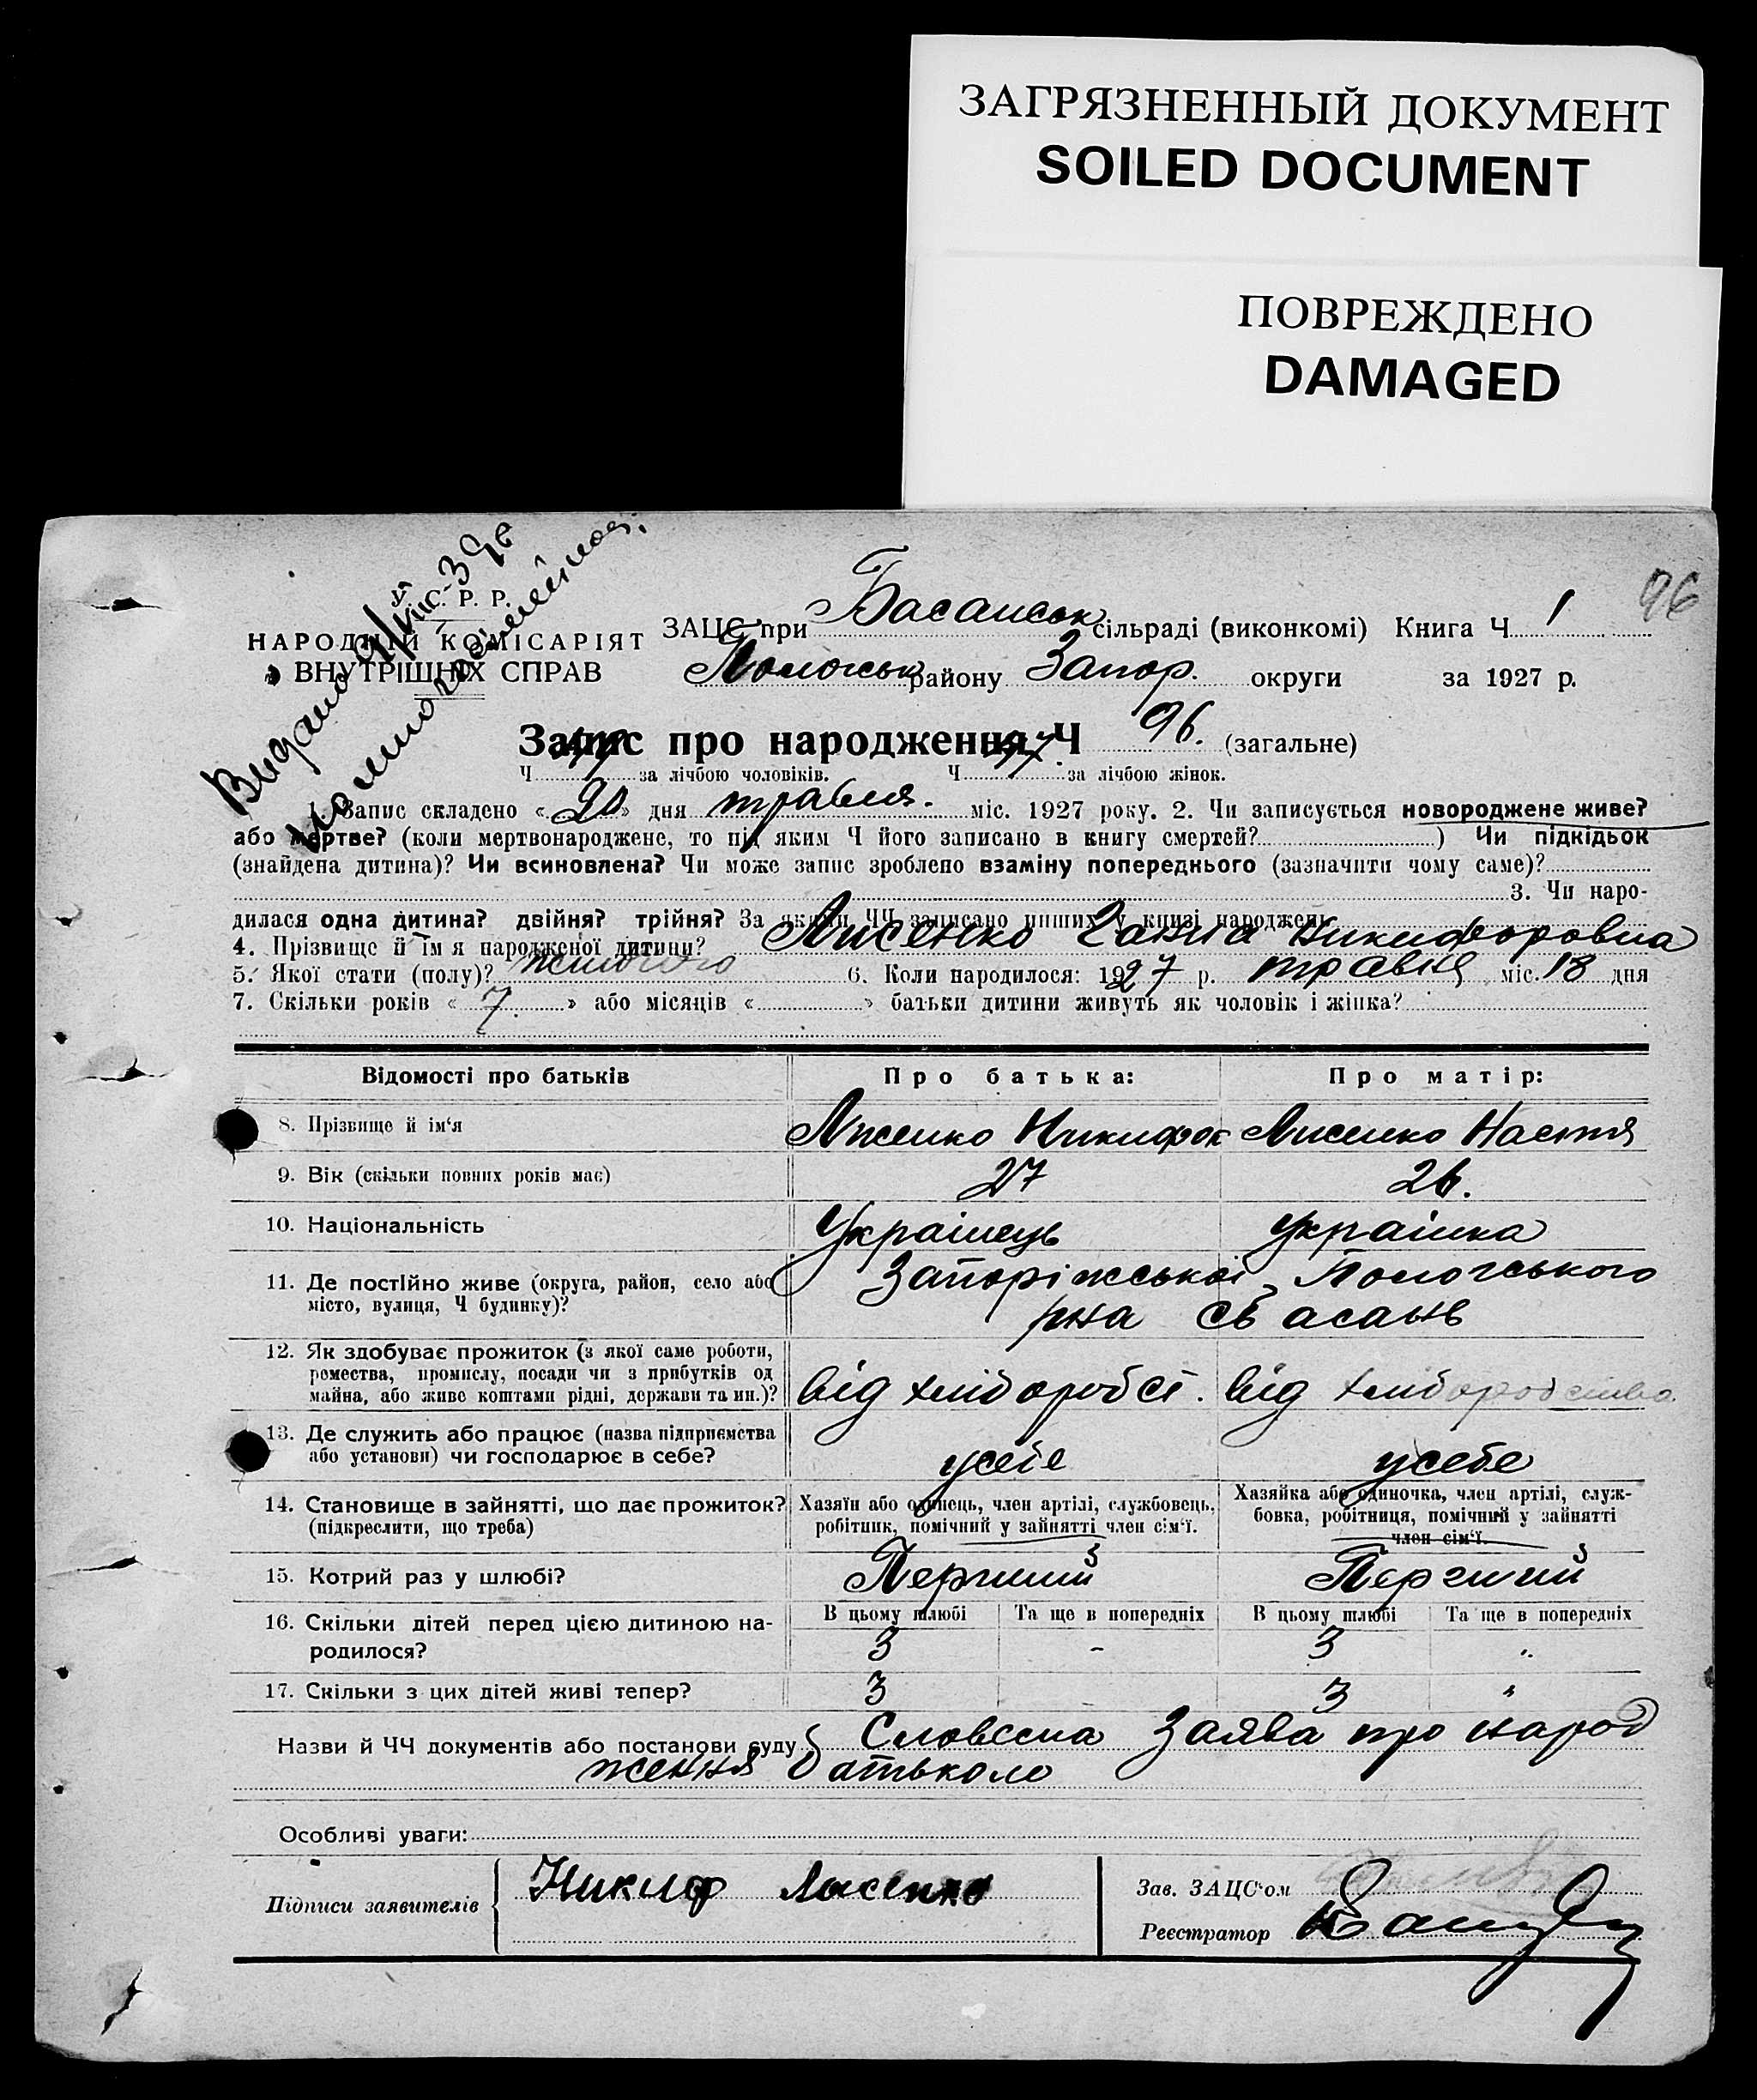 ЗАГРЯЗНЕННЫЙ ДОКУМЕНТ
SOILED DOCUMENT
ПОВРЕЖДЕНО
DAMAGED
96
С. Р. Р.
НАРОДНІЙ КОМІСАРІЯТ
ВНУТРІШНІХ СПРАВ
Видано
многосемейност.
ЗАЦС при Басанськ сільраді (виконкомі) Книга Ч 1
Пологськ району Запор. округи за 1927 р.
Запис про народження Ч 96. (загальне)
Ч 49 за лічбою чоловіків. Ч 47. за лічбою жінок.
1. Запис складено «20» дня травня. міс. 1927 року. 2. Чи записується новороджене живе?
або мертве? (коли мертвонароджене, то під яким Ч його записано в книгу смертей? ) Чи підкідьок
(знайдена дитина)? Чи всиновлена? Чи може запис зроблено взаміну попереднього (зазначити чому саме)?
3. Чи наро-
дилася одна дитина? двійня? трійня? За якими ЧЧ записано инших у книзі народжень
4. Прізвище й ім'я народженої дитини? Лисенко Ганна Никифоровна
5. Якої стати (полу)? жиночого 6. Коли народилося: 1927 р. травня міс. 18 дня
7. Скільки років « 7. » або місяців « » батьки дитини живуть як чоловік і жінка?
Відомості про батьків Про батька: Про матір:
8. Прізвище й ім'я Лисенко Никифор Лисенко Настя
9. Вік (скільки повних років має) 27 26.
10. Національність Українець українка
11. Де постійно живе (округа, район, село або Запоріжської Пологського
місто, вулиця, Ч будинку)? рна с Басань
12. Як здобуває прожиток (з якої саме роботи,
ремества, промислу, посади чи з прибутків од
майна, або живе коштами рідні, держави та ин.)? від хліборобст. від хліборобства.
13. Де служить або працює (назва підприємства
або установи) чи господарює в себе? усебе усебе
14. Становище в зайнятті, що дає прожиток? Хазяїн або одинець, член артілі, службовець, Хазяйка або одиночка, член артілі, служ-
(підкреслити, що треба) робітник, помічний у зайнятті член сім'ї. бовка, робітниця, помічний у зайнятті
член сім'ї.
15. Котрий раз у шлюбі? Перший Перший
16. Скільки дітей перед цією дитиною на- В цьому шлюбі Та ще в попередніх В цьому шлюбі Та ще в попередніх
родилося? 3 - 3 "
17. Скільки з цих дітей живі тепер? 3 3 "
Назви й ЧЧ документів або постанови суду Словесна Заява про народ
ження батьком
Особливі уваги:
Підписи заявителів Никиф Лисенко
Зав. ЗАЦС'ом
Реєстратор